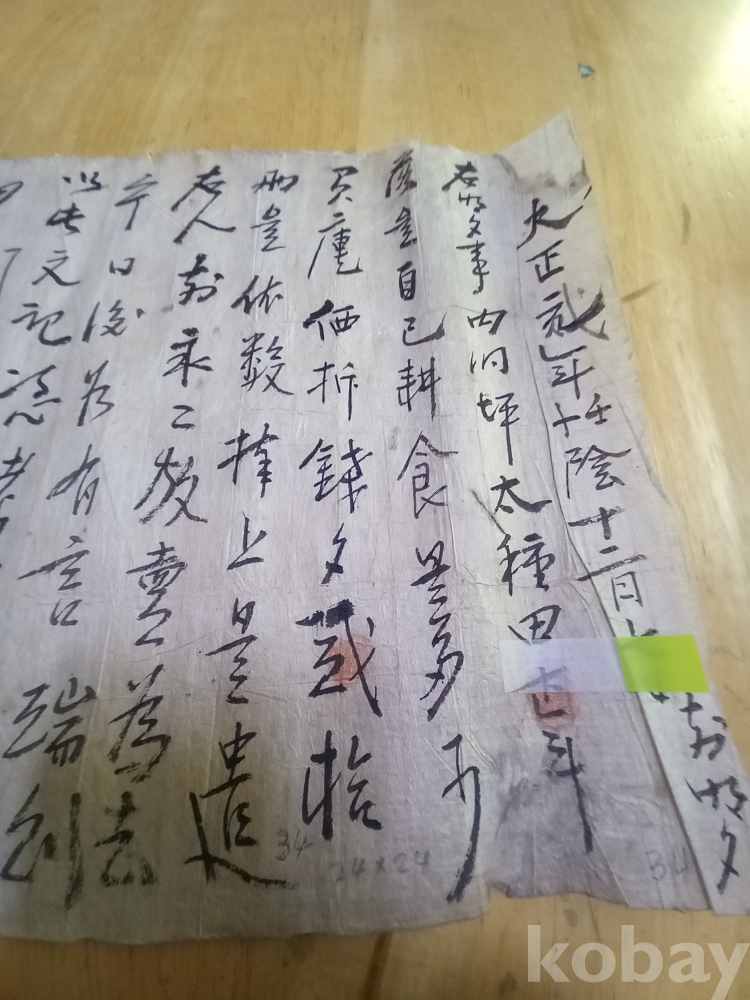 大正貳年壬陰十二月 前明文
右明文事內洞坪太種田 斗
落是自己耕食是多可
買處価折錢文貳拾
兩是依數捧上是遣
右人前永二放賣為去
乎日後若有言端
以此文記憑考
kobay
34
24×24
34